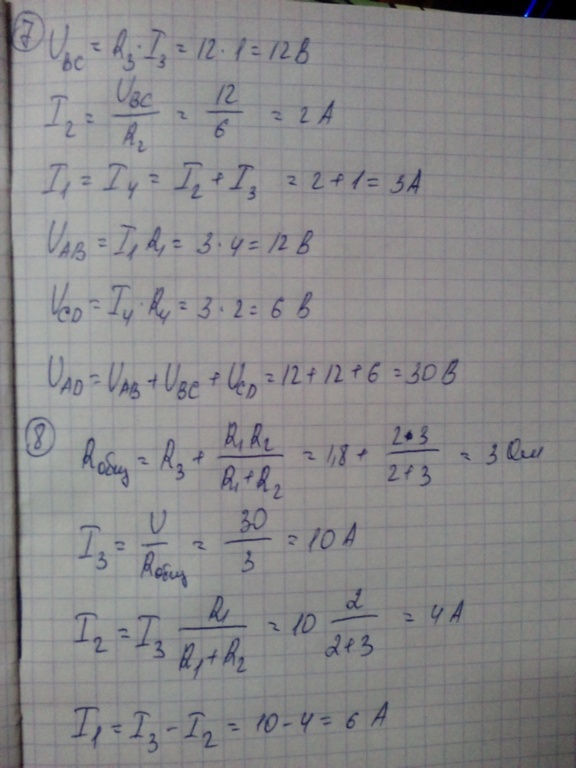 7 U_BC = R_3 · I_3 = 12 · 1 = 12 В
I_2 = U_BC / R_2 = 12 / 6 = 2 А
I_1 = I_4 = I_2 + I_3 = 2 + 1 = 3 А
U_AB = I_1 R_1 = 3 · 4 = 12 В
U_CD = I_4 · R_4 = 3 · 2 = 6 В
U_AD = U_AB + U_BC + U_CD = 12 + 12 + 6 = 30 В
8 R_общ = R_3 + R_1 R_2 / R_1 + R_2 = 1,8 + 2 · 3 / 2 + 3 = 3 Ом
I_3 = U / R_общ = 30 / 3 = 10 А
I_2 = I_3 R_1 / R_1 + R_2 = 10 2 / 2 + 3 = 4 А
I_1 = I_3 - I_2 = 10 - 4 = 6 А